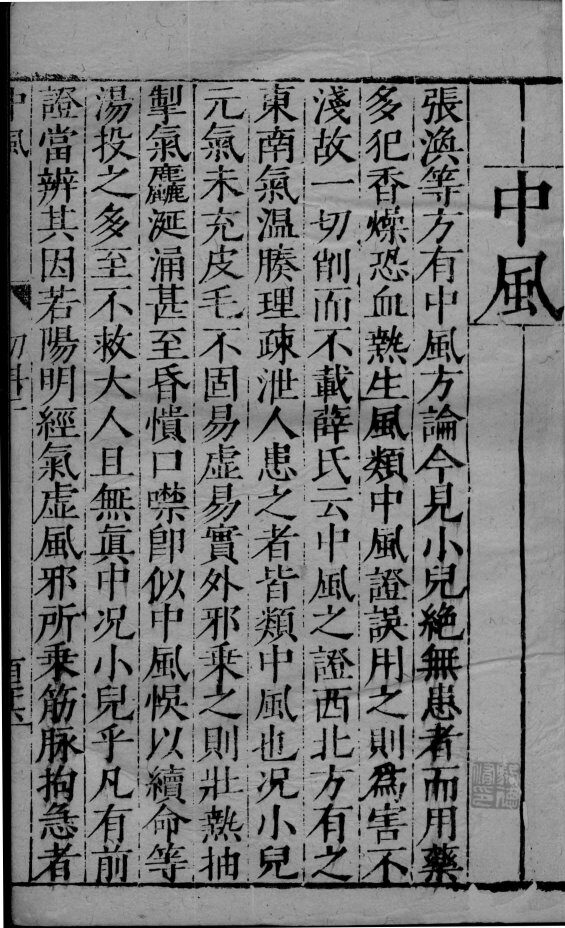 中風
張渙等方有中風方論今見小兒絶無患者而用藥
多犯香燥恐血熱生風類中風證誤用之則爲害不
淺故一切削而不載薛氏云中風之證西北方有之
東南氣溫腠理疎泄人患之者皆類中風也况小兒
元氣未充皮毛不固易虛易實外邪乗之則壯熱抽
掣氣麤涎涌甚至昏憒口噤卽似中風悞以續命等
湯投之多至不救大人且無眞中况小兒乎凡有前
證當辨其因若陽明經氣虛風邪所乗筋脉拘急者
中風